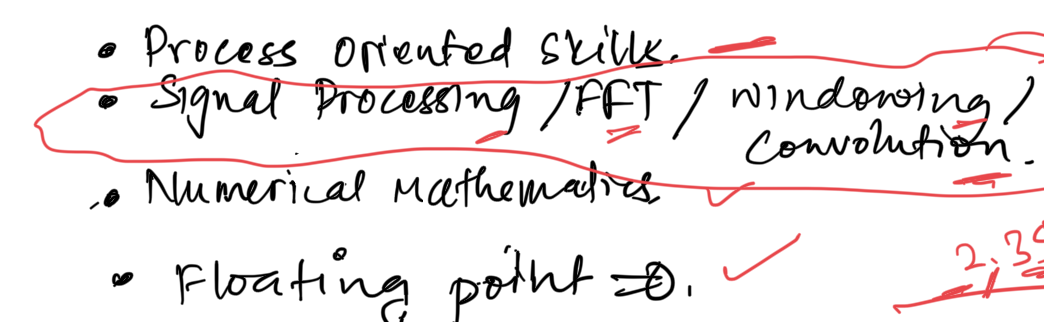 • Process oriented skills.
• Signal Processing / FFT / windowing /
convolution.
• Numerical Mathematics
• Floating point